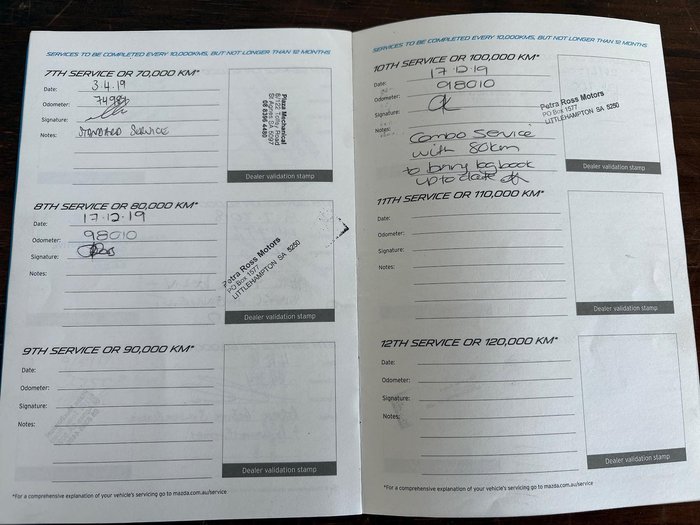 SERVICES TO BE COMPLETED EVERY 10,000KMS, BUT NOT LONGER THAN 12 MONTHS
7TH SERVICE OR 70,000 KM*
Date: 3.4.19
Odometer: 74984
Signature:
Notes: STANDARD SERVICE
Plaza Mechanical
6/122 Tolley Road
St Agnes SA 5097
08 8396 4480
Dealer validation stamp
8TH SERVICE OR 80,000 KM*
Date: 17.12.19
Odometer: 98010
Signature:
Notes:
Petra Ross Motors
PO Box 1577
LITTLEHAMPTON SA 5250
Dealer validation stamp
9TH SERVICE OR 90,000 KM*
Date:
Odometer:
Signature:
Notes:
Dealer validation stamp
*For a comprehensive explanation of your vehicle's servicing go to mazda.com.au/service
SERVICES TO BE COMPLETED EVERY 10,000KMS, BUT NOT LONGER THAN 12 MONTHS
10TH SERVICE OR 100,000 KM*
Date: 17.12.19
Odometer: 98010
Signature:
Notes: Combo Service
with 80km
to bring logbook
up to date
Petra Ross Motors
PO Box 1577
LITTLEHAMPTON SA 5250
Dealer validation stamp
11TH SERVICE OR 110,000 KM*
Date:
Odometer:
Signature:
Notes:
Dealer validation stamp
12TH SERVICE OR 120,000 KM*
Date:
Odometer:
Signature:
Notes:
Dealer validation stamp
*For a comprehensive explanation of your vehicle's servicing go to mazda.com.au/service